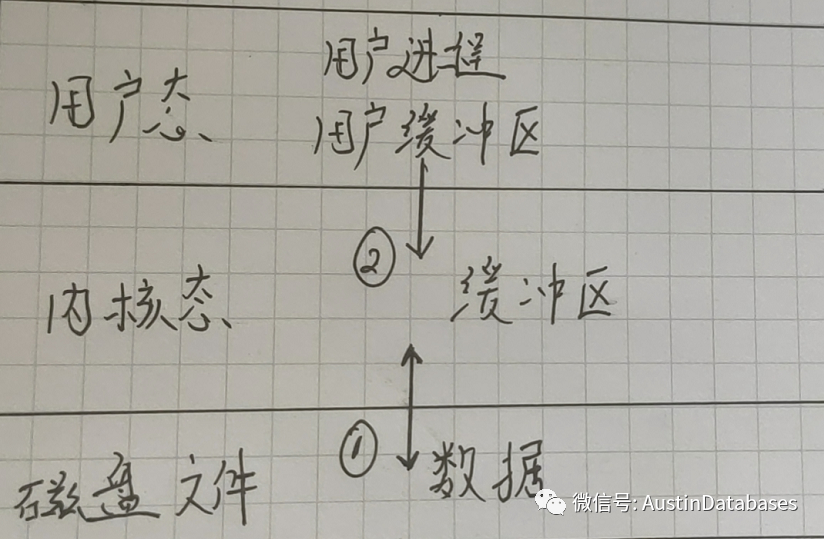 用户态
用户进程
用户缓冲区
②
内核态
缓冲区
①
磁盘文件
数据
微信号: AustinDatabases